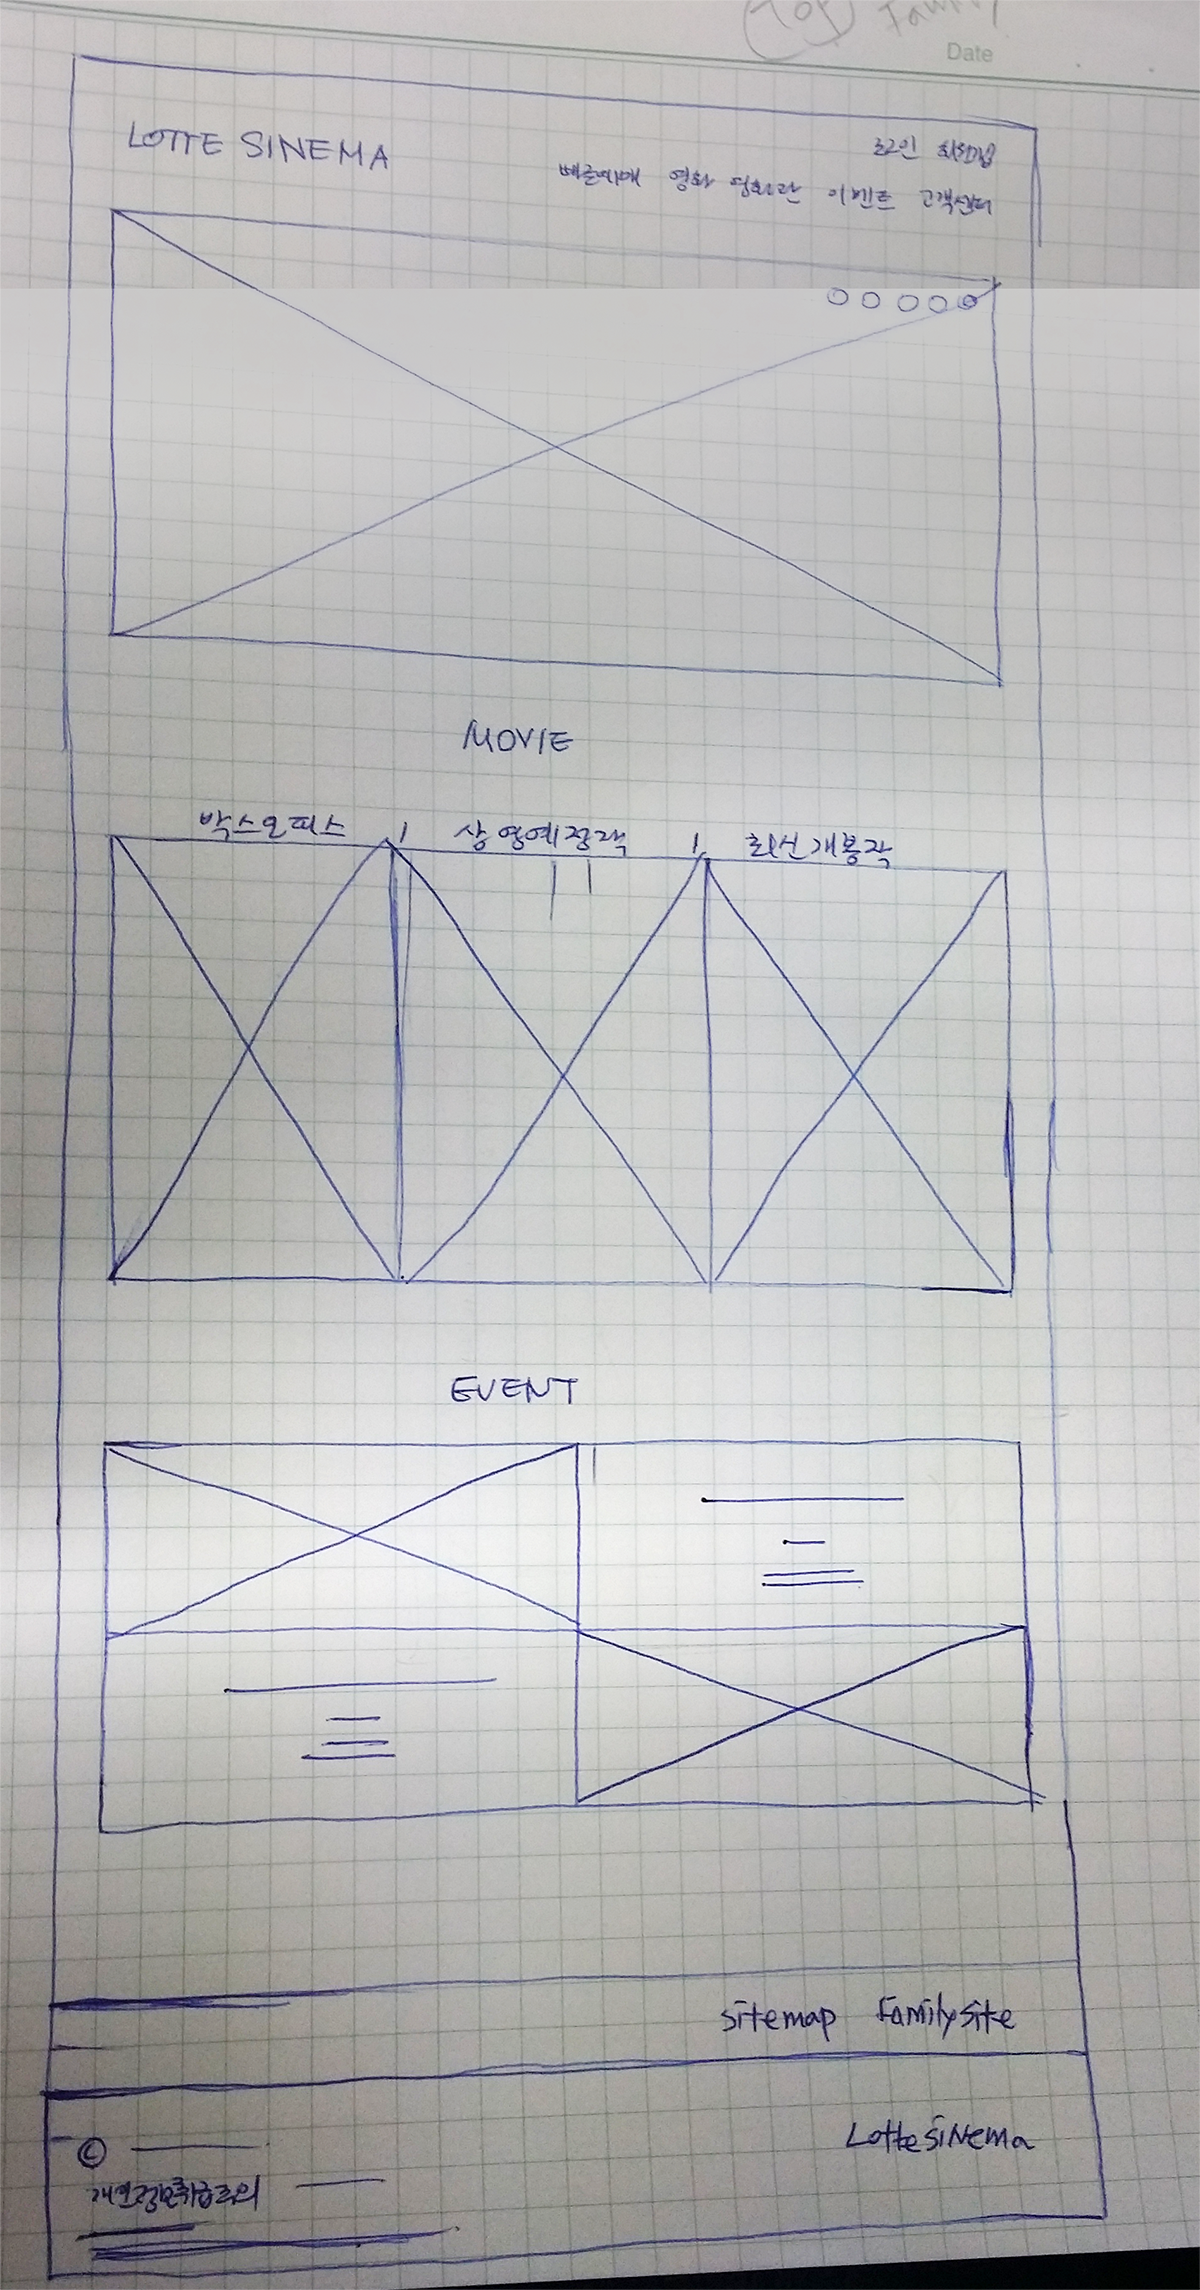 Top Family
Date
LOTTE SINEMA
로그인 회원가입
빠른예매 영화 영화관 이벤트 고객센터
MOVIE
박스오피스 | 상영예정작 | 최신개봉작
EVENT
sitemap Familysite
LottesiNema
©